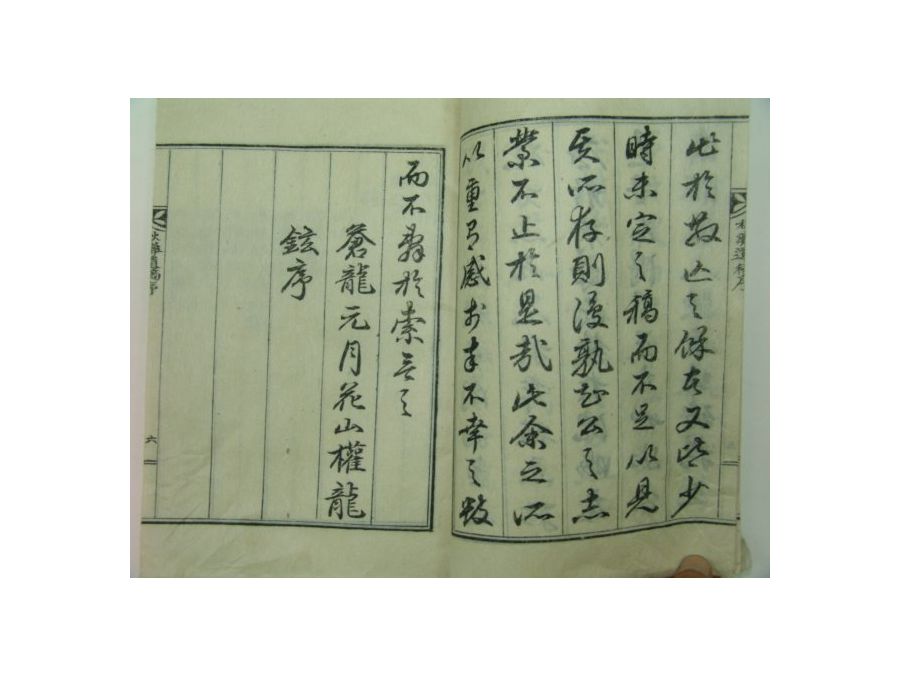 於散亡之餘者又皆少
時未定之稿而不足以見
其所存則後孰知公之志
業不止於是哉此余之所
以重有感於幸不幸之數
而不辭於索言之
蒼龍元月花山權龍
鉉序
六